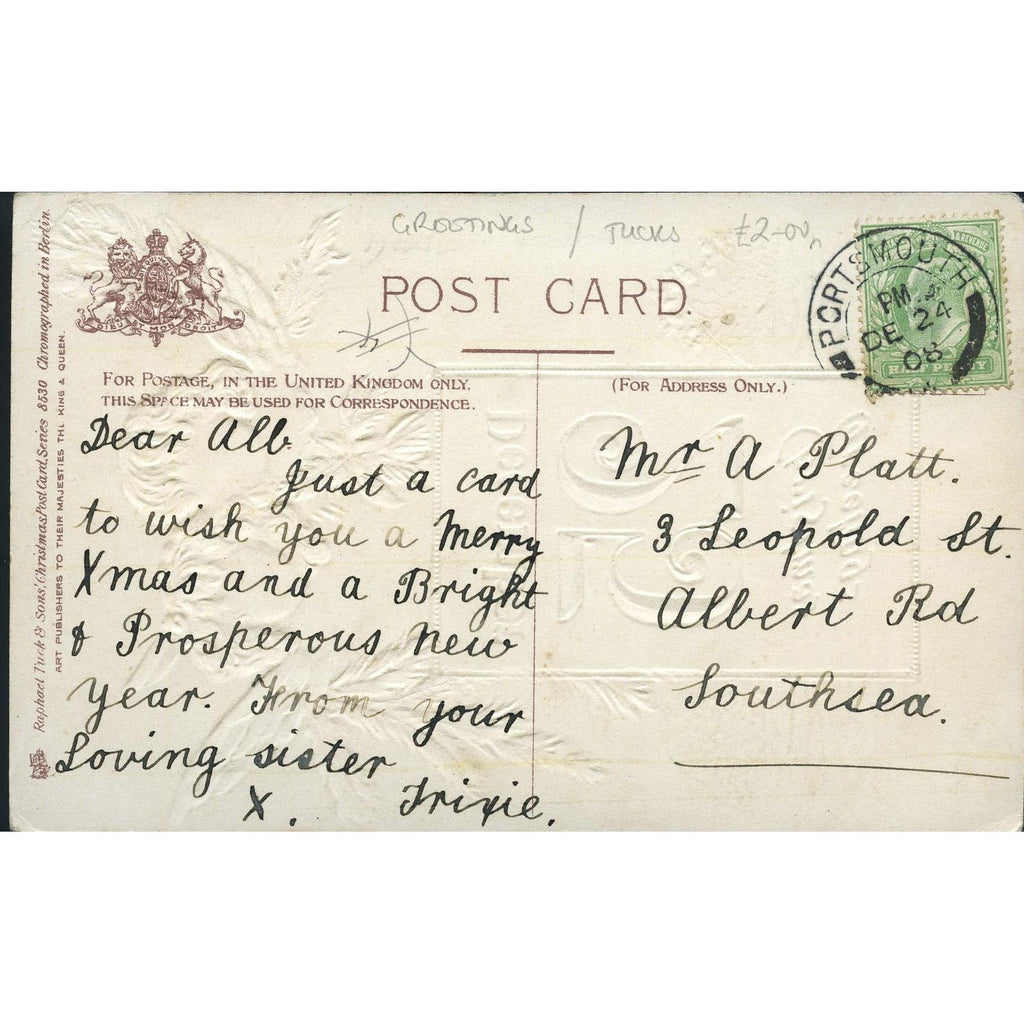 GREETINGS / TUCKS £2-00
POST CARD.
FOR POSTAGE, IN THE UNITED KINGDOM ONLY,
THIS SPACE MAY BE USED FOR CORRESPONDENCE.
(FOR ADDRESS ONLY.)
PORTSMOUTH
PM
DE 24
08
& REVENUE
HALF PENNY
DIEU ET MON DROIT
Raphael Tuck & Sons' Christmas Post Card, Series 8530 Chromographed in Berlin.
ART PUBLISHERS TO THEIR MAJESTIES THE KING & QUEEN.
Dear Alb
Just a card
to wish you a Merry
Xmas and a Bright
& Prosperous New
Year. From your
Loving sister
X. Trixie.
Mr A Platt.
3 Leopold St.
Albert Rd
Southsea.